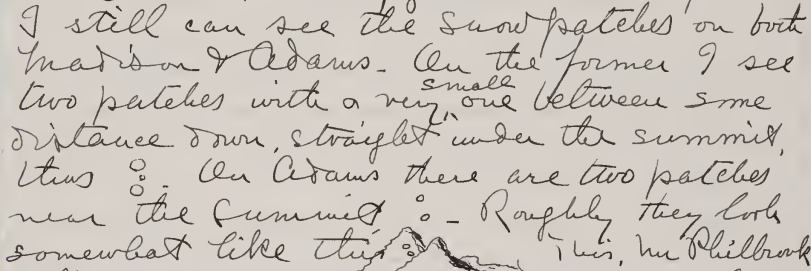 I still can see the snow patches on both
Madison & Adams - On the former I see
two patches with a very small one between some
distance down, straight under the summit,
thus . On Adams there are two patches
near the summit - Roughly they look
somewhat like this This, Mr Philbrook